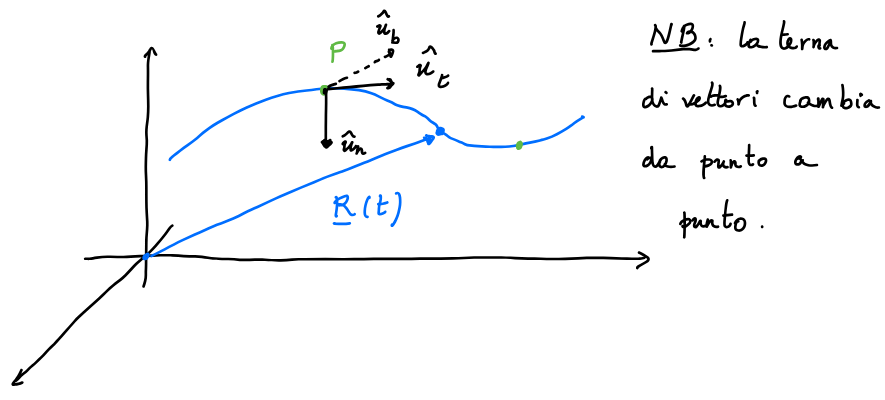 P
û_b
û_t
û_n
R(t)
NB: la terna
di vettori cambia
da punto a
punto.